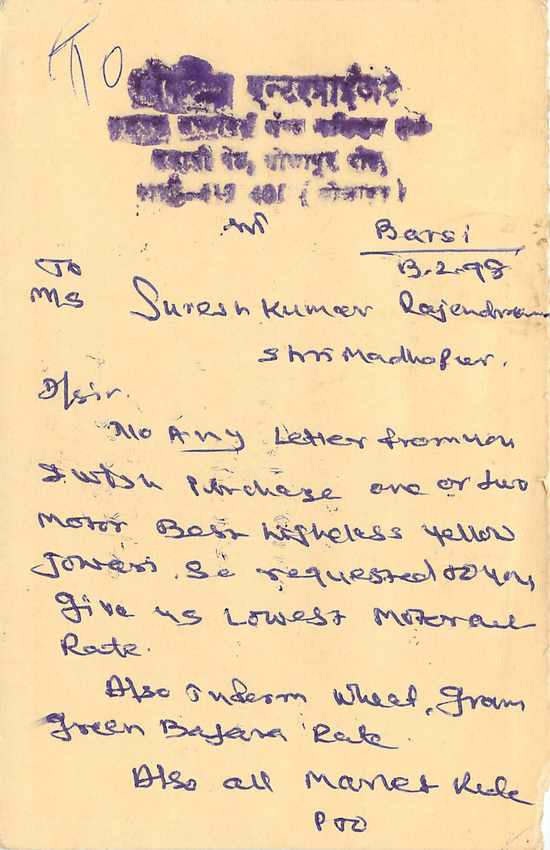 TO
एन्टरप्राईजेस
Barsi
13.2.98
To
M/s Suresh Kumar Rajendra
Shri Madhopur.
D/sir.
No Any Letter from you
I wish Purchase one or two
Motor Best highcless yellow
Jowari. So requested to you
give us Lowest
Rate.
Also Inform wheat, gram
green Bajara Rate
Also all Market Rate
PTO